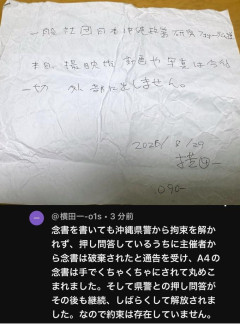 一般社団日本沖縄政策研究フォーラム
撮影
動画や写真は今後
一切 外部に出しません。
2025/8/29
090-
@横田一-o1s・3 分前
念書を書いても沖縄県警から拘束を解か
れず、押し問答しているうちに主催者から
念書は破棄されたと通告を受け、A4の
念書は手でくちゃくちゃにされて丸めこ
まれました。そして県警との押し問答が
その後も継続、しばらくして解放されま
した。なので約束は存在していません。